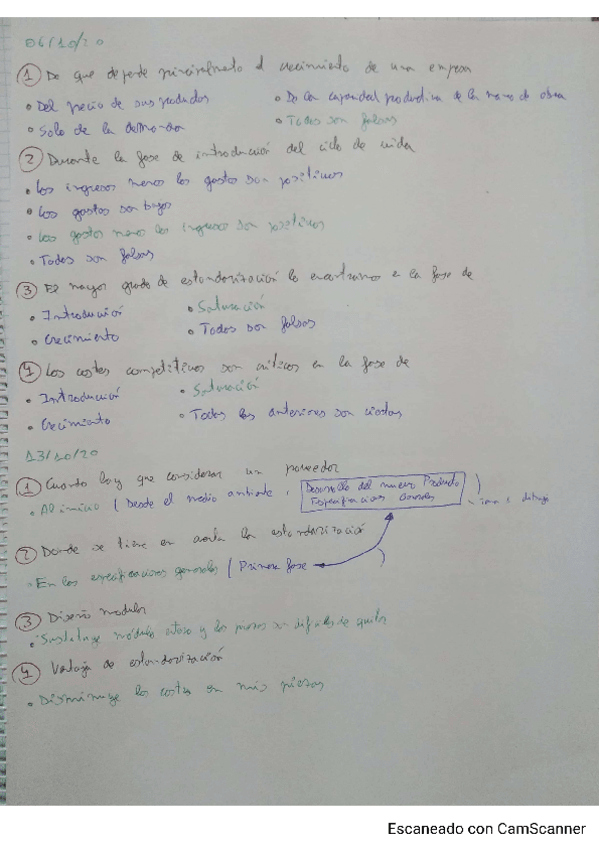 06/10/20
① De que depende principalmente el crecimiento de una empresa
• Del precio de sus productos
• De la capacidad productiva de la mano de obra
• Solo de la demanda
• Todas son falsas
② Durante la fase de introducción del ciclo de vida
• Los ingresos menos los gastos son positivos
• Los gastos son bajos
• Los gastos menos los ingresos son positivos
• Todas son falsas
③ El mayor grado de estandarización lo encontramos en la fase de
• Introducción
• Saturación
• Crecimiento
• Todas son falsas
④ Los costes competitivos son críticos en la fase de
• Introducción
• Saturación
• Crecimiento
• Todas las anteriores son ciertas
13/10/20
① Cuando hay que considerar un proveedor
• Al inicio (Desde el medio ambiente,
Desarrollo del nuevo Producto
Especificaciones Generales
)
② Donde se tiene en cuenta la estandarización
• En las especificaciones generales (Primera fase )
③ Diseño modular
• Sustituye módulos y las piezas son difíciles de quitar
④ Ventaja de estandarización
• Disminuye los costes en mis piezas
Escaneado con CamScanner